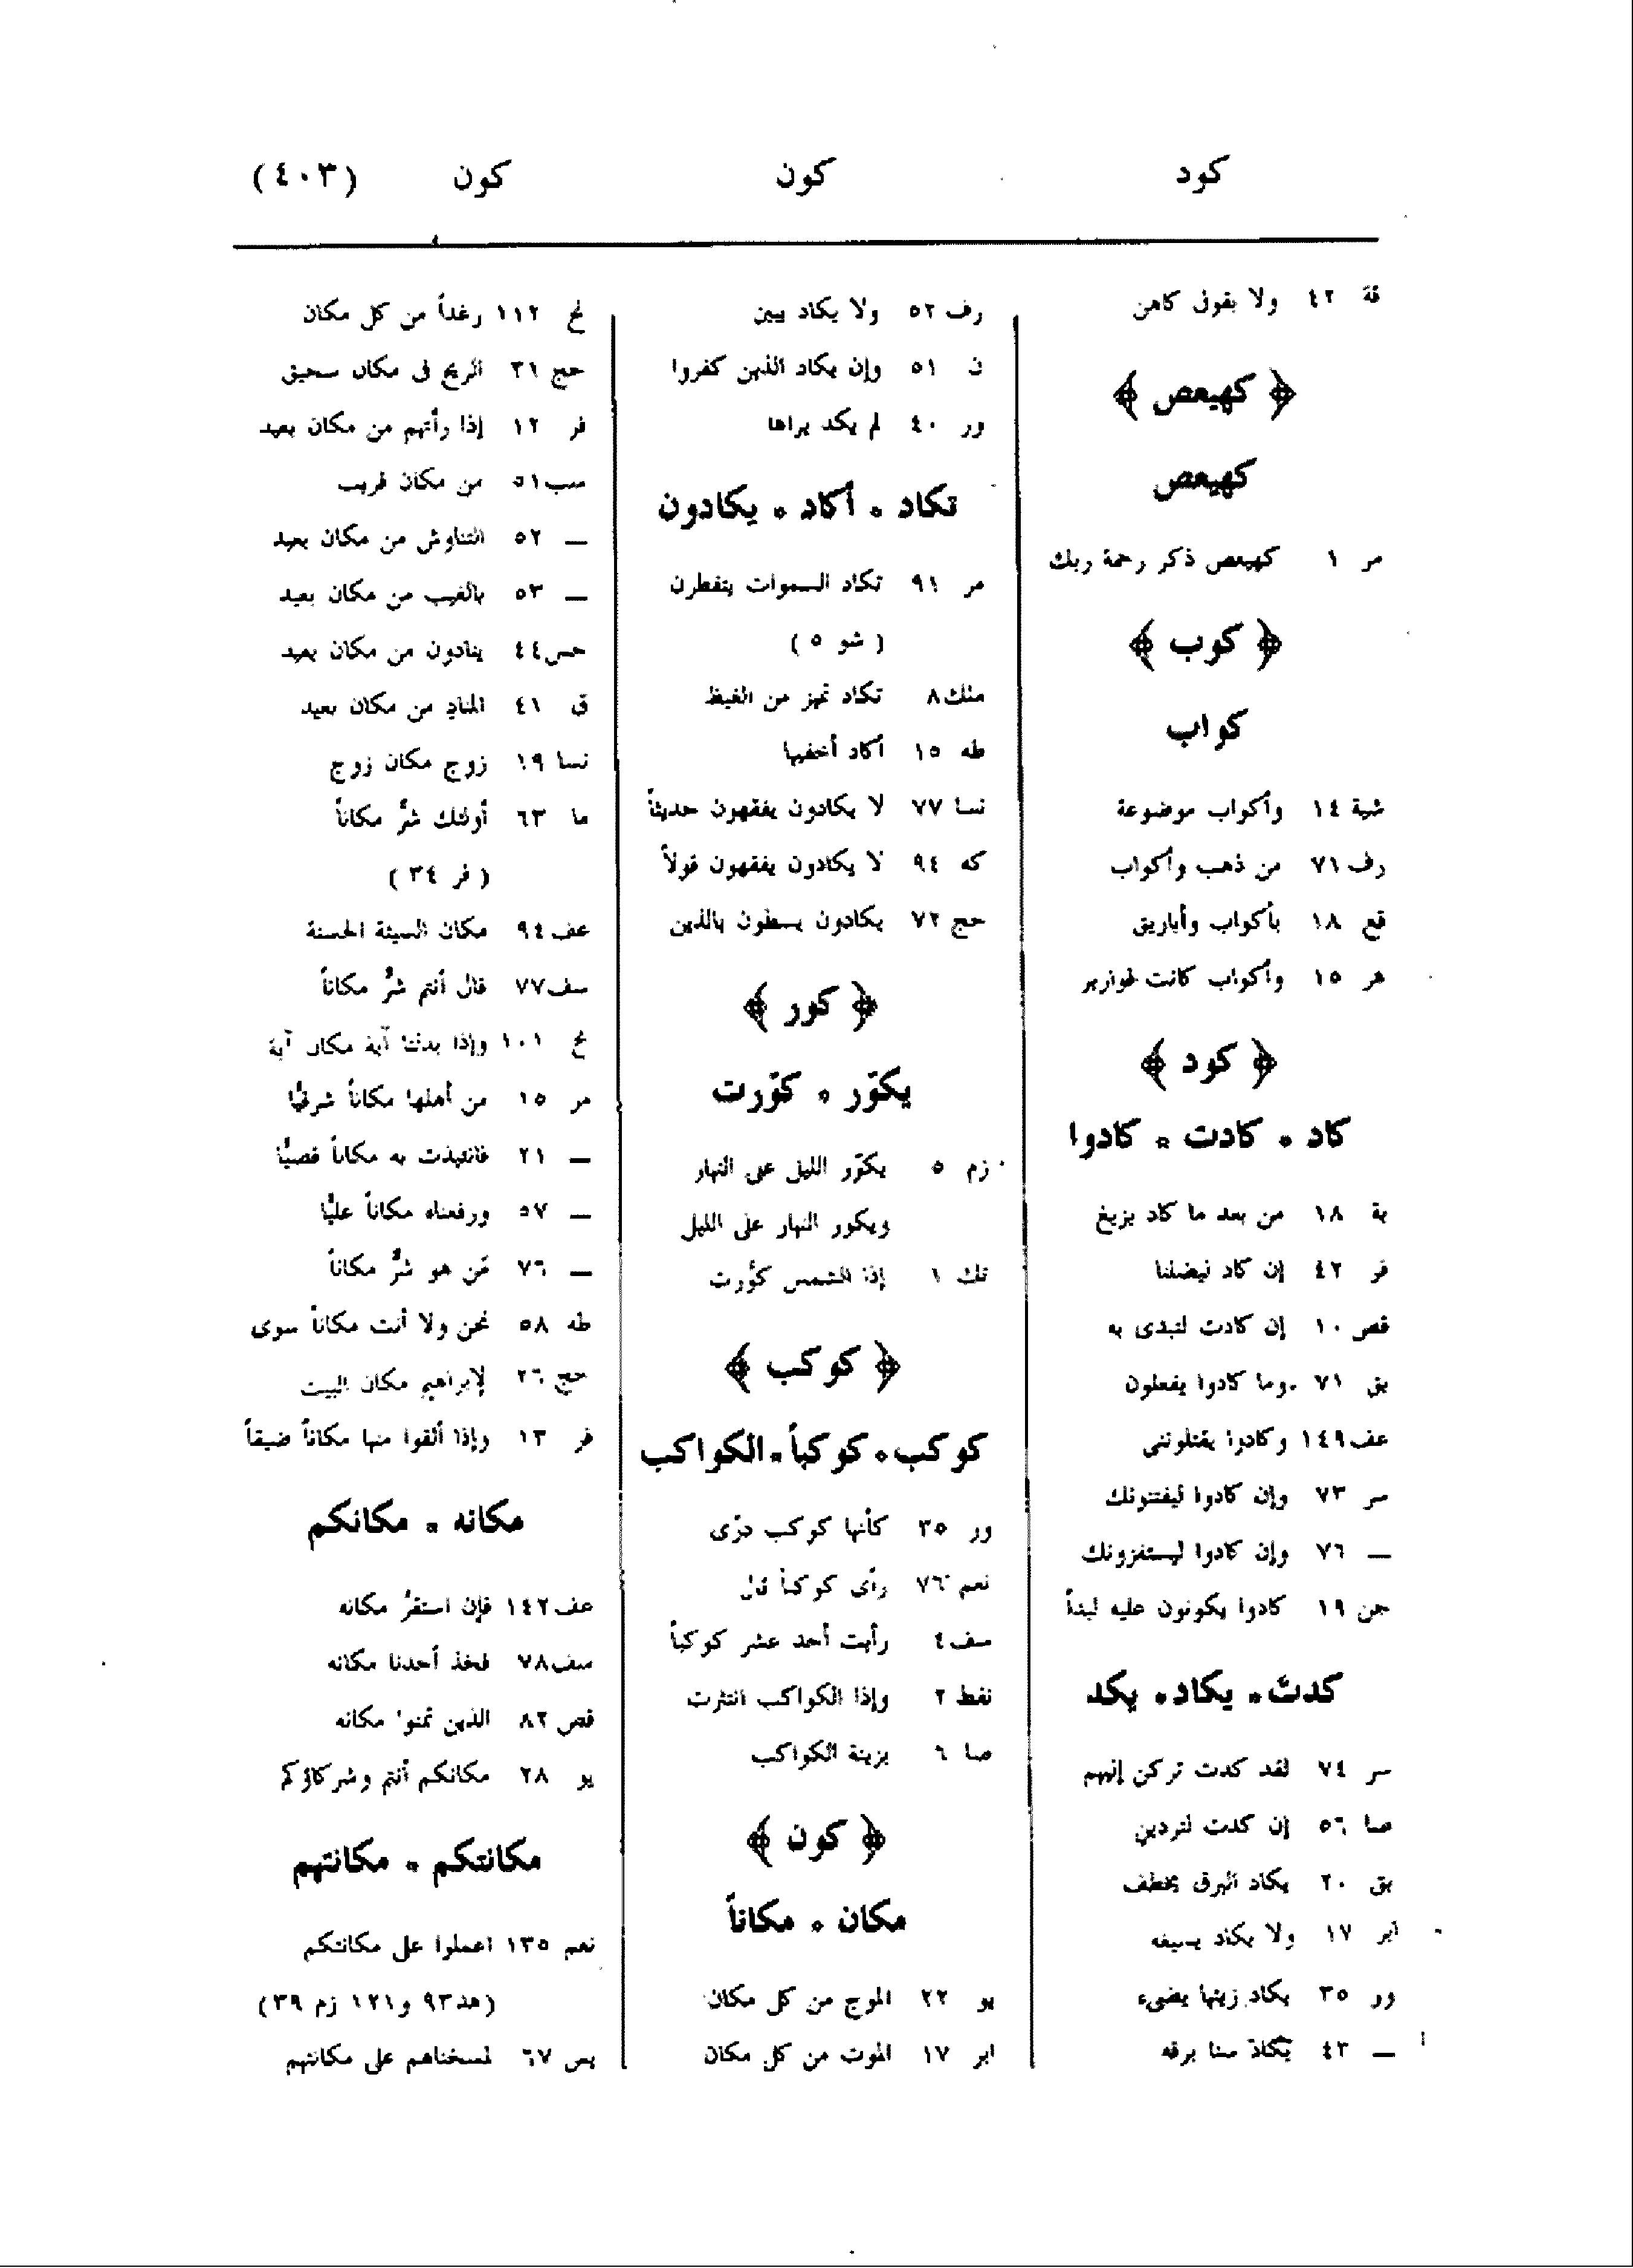 كود كون كون (٤٠٣)
قة ٤٢ ولا بقول كاهن
﴿ كهيعص ﴾
كهيعص
مر ١ كهيعص ذكر رحمة ربك
﴿ كوب ﴾
كواب
شية ١٤ وأكواب موضوعة
رف ٧١ من ذهب وأكواب
قع ١٨ بأكواب وأباريق
هر ١٥ وأكواب كانت قوارير
﴿ كود ﴾
كاد . كادت . كادوا
بة ١٨ من بعد ما كاد يزيغ
فر ٤٢ إن كاد ليضلنا
قص ١٠ إن كادت لتبدى به
بق ٧١ وما كادوا يفعلون
عف ١٤٩ وكادوا يقتلوننى
سر ٧٣ وإن كادوا ليفتنونك
— ٧٦ وإن كادوا ليستفزونك
جن ١٩ كادوا يكونون عليه لبداً
كدتَ . يكاد . يكد
سر ٧٤ لقد كدت تركن إليهم
صا ٥٦ إن كدت لتردين
بق ٢٠ يكاد البرق يخطف
ابر ١٧ ولا يكاد يسيغه
ور ٣٥ يكاد زيتها يضىء
— ٤٣ يكاد سنا برقه
رف ٥٢ ولا يكاد يبين
ن ٥١ وإن يكاد الذين كفروا
ور ٤٠ لم يكد يراها
تكاد . أكاد . يكادون
مر ٩١ تكاد السموات يتفطرن
( شو ٥ )
ملك ٨ تكاد تميز من الغيظ
طه ١٥ أكاد أخفيها
نسا ٧٧ لا يكادون يفقهون حديثاً
كه ٩٤ لا يكادون يفقهون قولاً
حج ٧٢ يكادون يسطون بالذين
﴿ كور ﴾
يكوّر . كوّرت
زم ٥ يكوّر الليل على النهار
ويكور النهار على الليل
تك ١ إذا الشمس كوّرت
﴿ كوكب ﴾
كوكب . كوكباً . الكواكب
ور ٣٥ كأنها كوكب درّى
نعم ٧٦ رأى كوكباً قال
سف ٤ رأيت أحد عشر كوكباً
نفط ٢ وإذا الكواكب انتثرت
صا ٦ بزينة الكواكب
﴿ كون ﴾
مكان . مكاناً
يو ٢٢ الموج من كل مكان
ابر ١٧ الموت من كل مكان
نح ١١٢ رغداً من كل مكان
حج ٣١ الريح فى مكان سحيق
فر ١٢ إذا رأتهم من مكان بعيد
سب ٥١ من مكان قريب
— ٥٢ التناوش من مكان بعيد
— ٥٣ بالغيب من مكان بعيد
حس ٤٤ ينادون من مكان بعيد
ق ٤١ المنادِ من مكان بعيد
نسا ١٩ زوج مكان زوج
ما ٦٣ أولئك شرٌّ مكاناً
( فر ٣٤ )
عف ٩٤ مكان السيئة الحسنة
سف ٧٧ قال أنتم شرٌّ مكاناً
نح ١٠١ وإذا بدلنا آية مكان آية
مر ١٥ من أهلها مكاناً شرقيًّا
— ٢١ فانتبذت به مكاناً قصيًّا
— ٥٧ ورفعناه مكاناً عليًّا
— ٧٦ مَن هو شرٌّ مكاناً
طه ٥٨ نحن ولا أنت مكاناً سوى
حج ٢٦ لإبراهيم مكان البيت
فر ١٣ وإذا ألقوا منها مكاناً ضيقاً
مكانه . مكانكم
عف ١٤٢ فإن استقرَّ مكانه
سف ٧٨ فخذ أحدنا مكانه
قص ٨٢ الذين تمنوا مكانه
يو ٢٨ مكانكم أنتم وشركاؤكم
مكانتكم . مكانتهم
نعم ١٣٥ اعملوا على مكانتكم
(هد ٩٣ و ١٢١ زم ٣٩)
يس ٦٧ لمسخناهم على مكانتهم